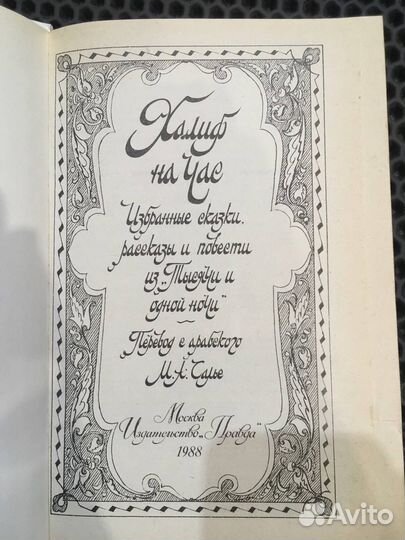 Халиф
на час
Избранные сказки,
рассказы и повести
из „Тысячи и
одной ночи“
Перевод с арабского
М.А. Салье
Москва
Издательство „Правда“
1988
Avito